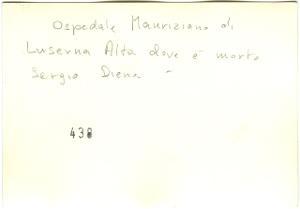 Ospedale Mauriziano di
Luserna Alta dove è morto
Sergio Diena
438